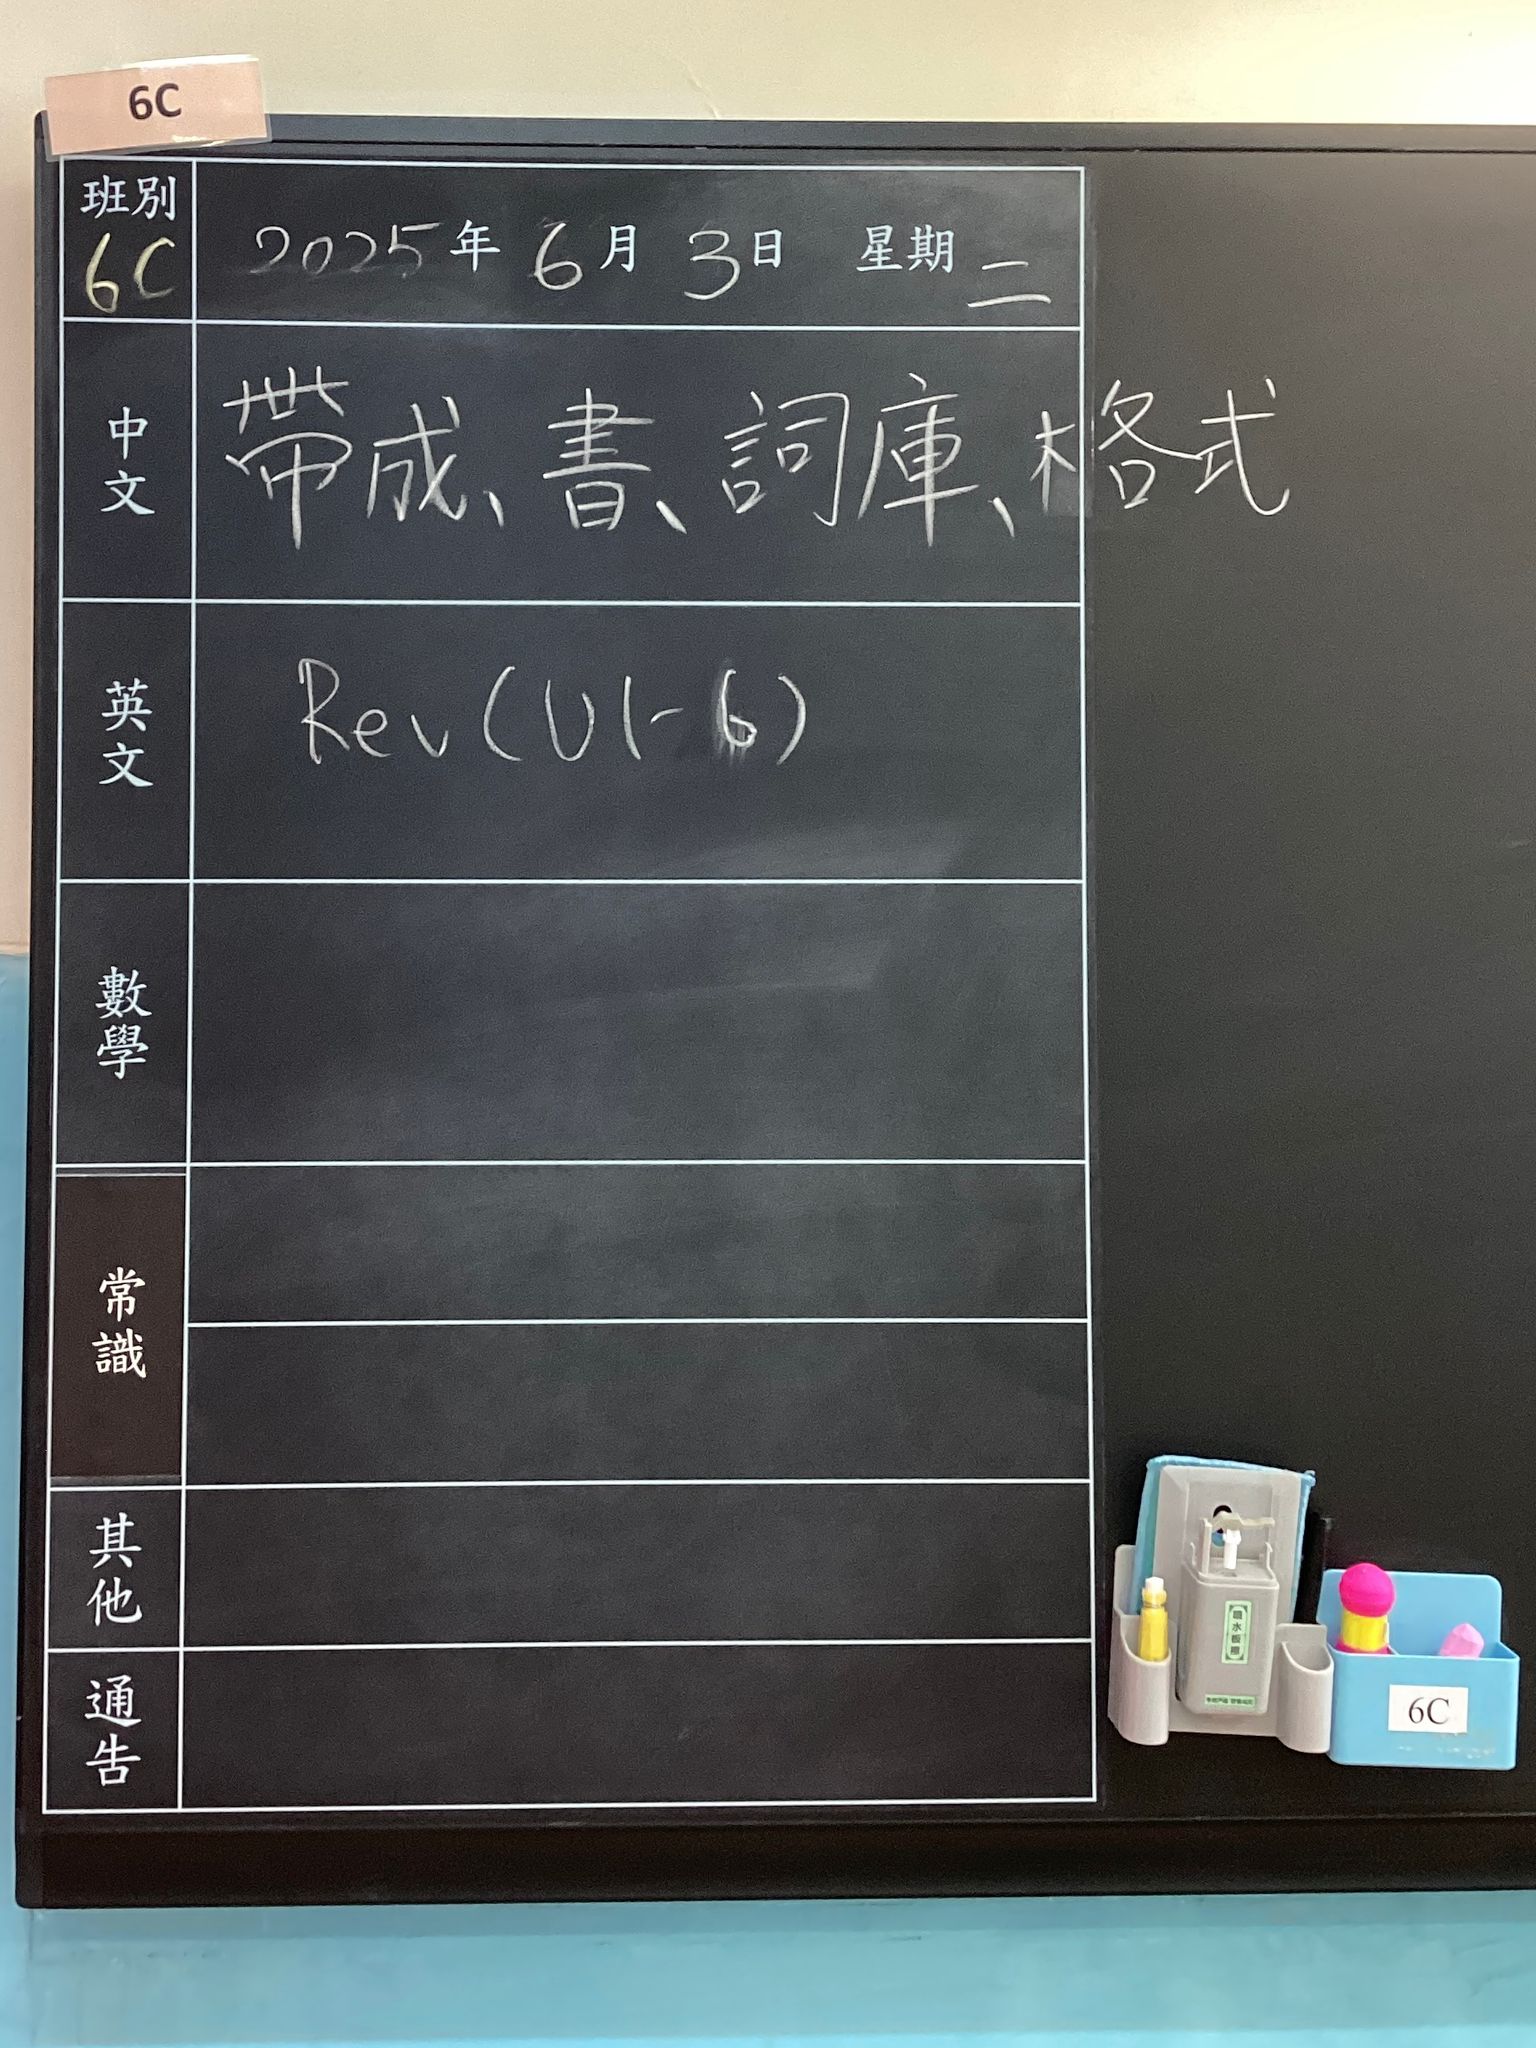 6C
班別
6C
2025年 6月 3日 星期二
中文
帶成、書、詞庫、格式
英文
Rev (U1-6)
數學
常識
其他
通告
吸水板擦
6C